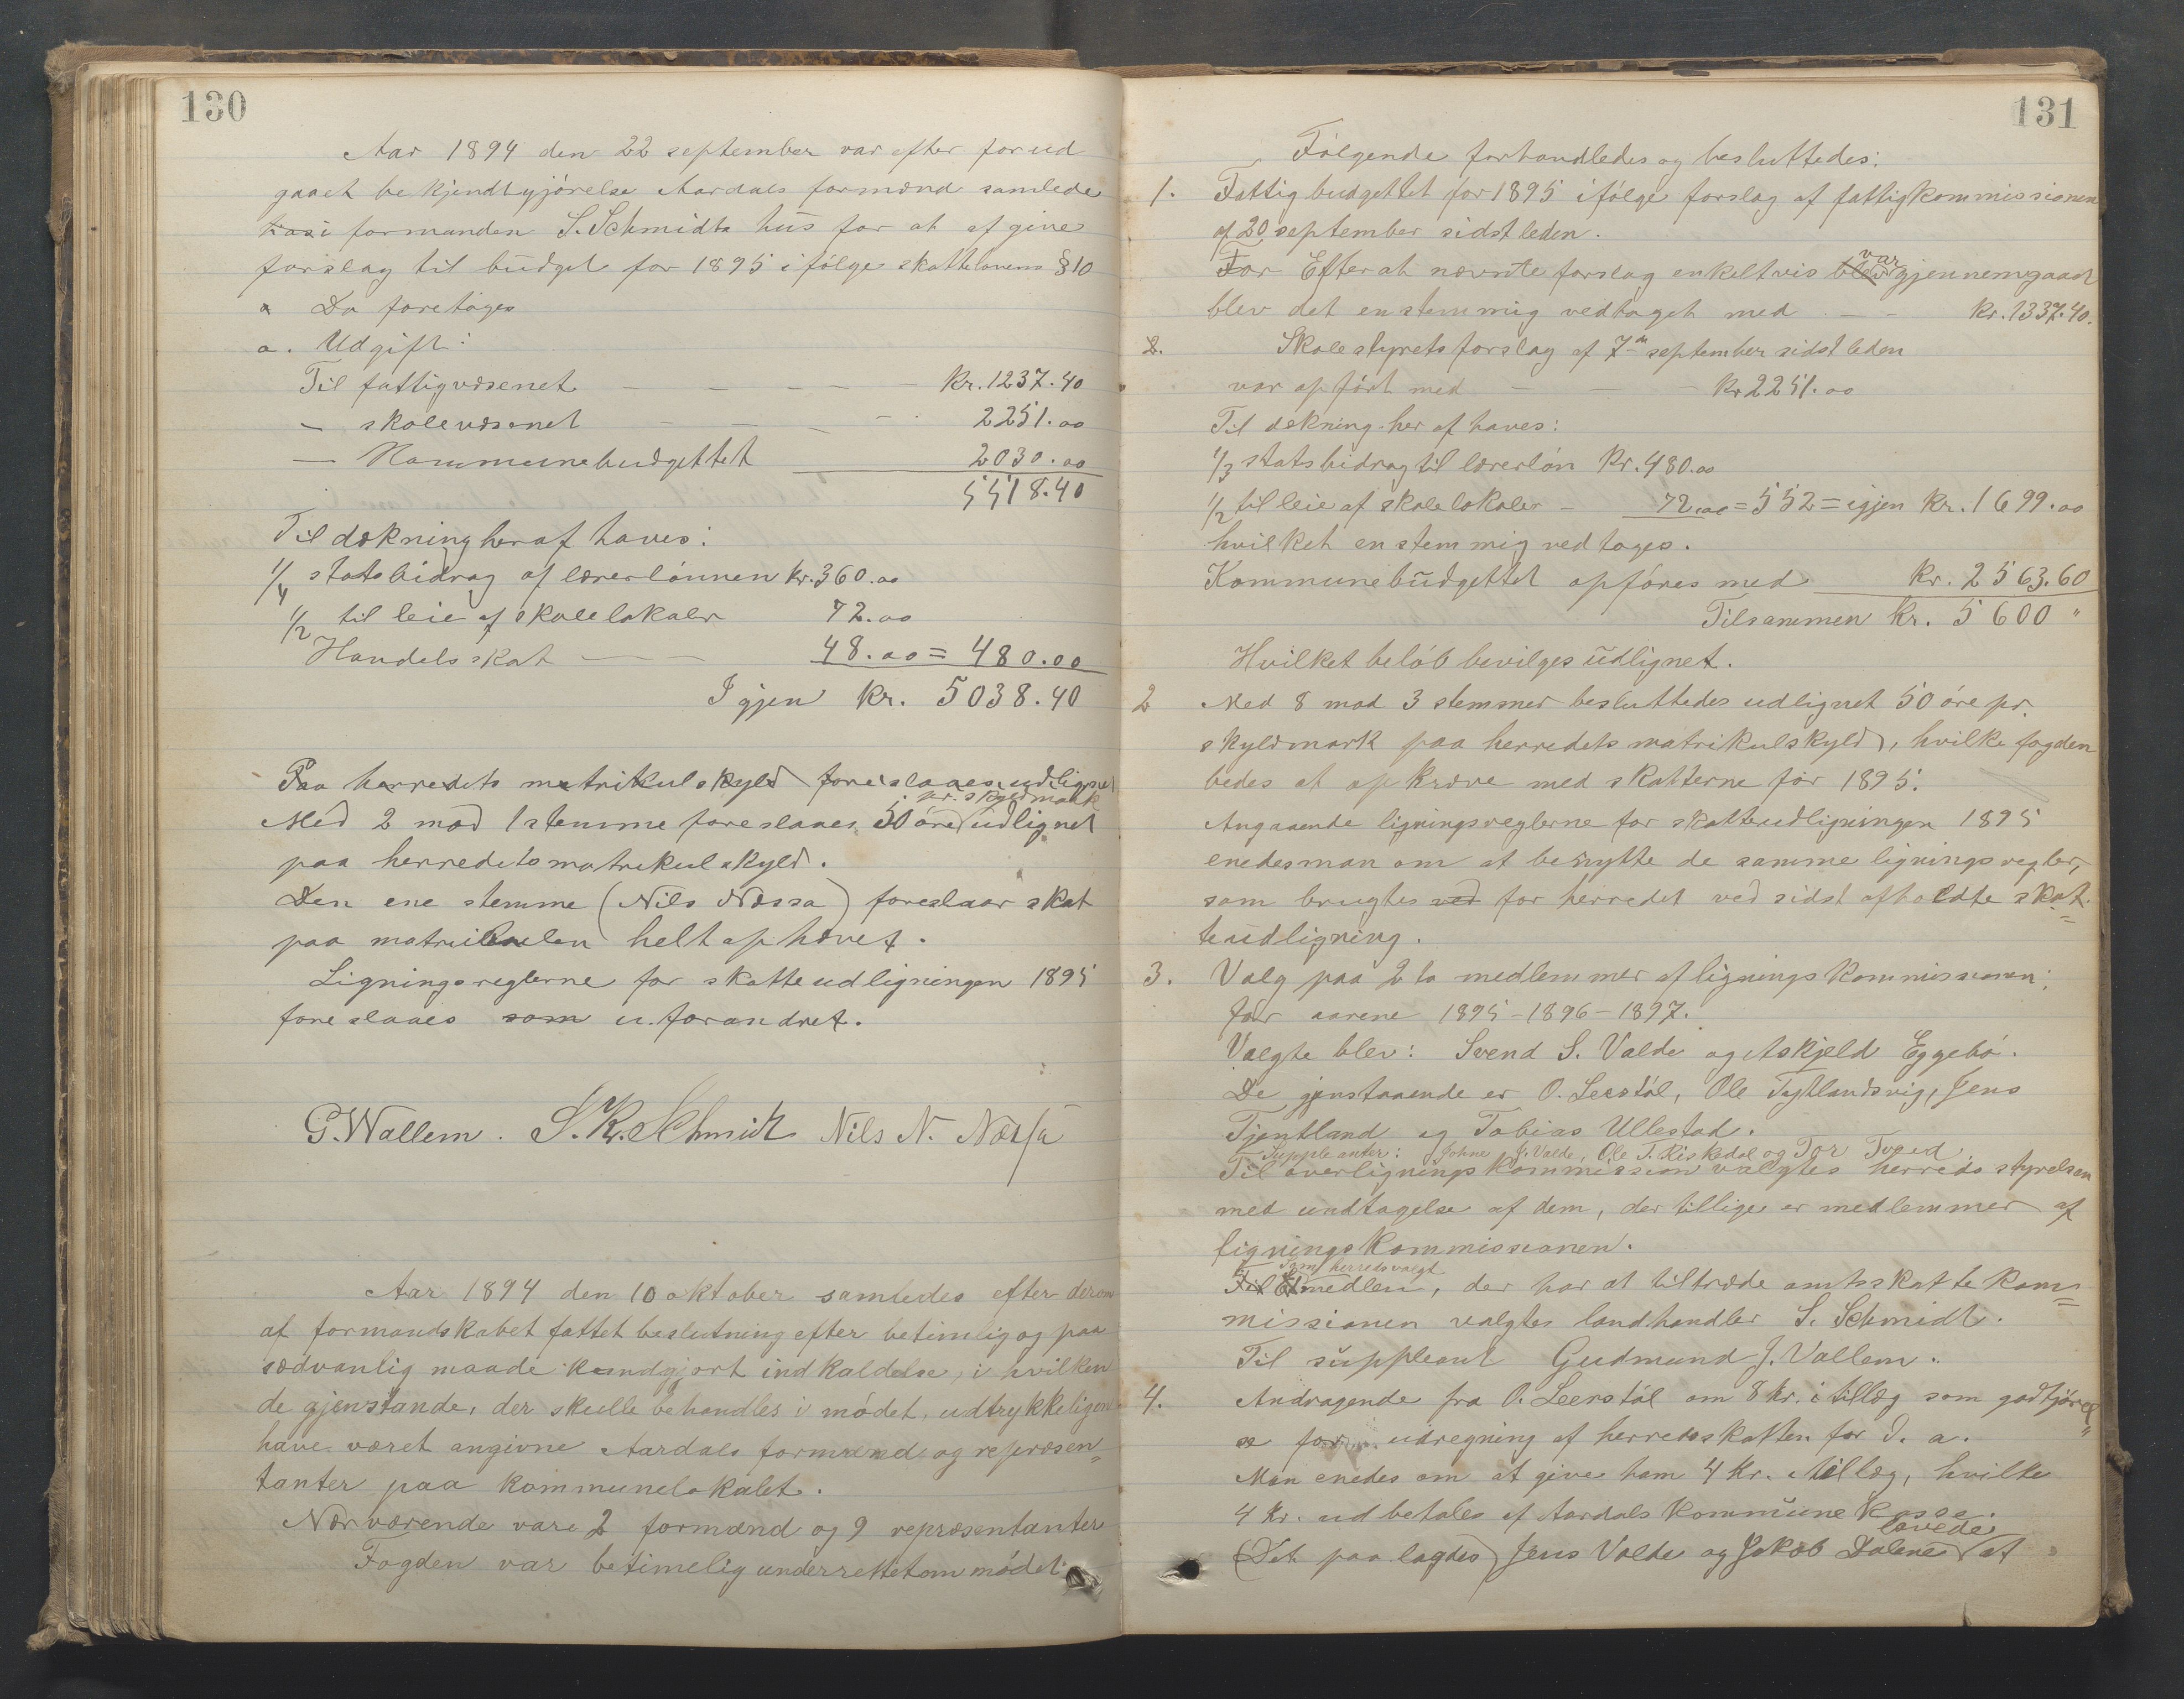 130
Aar 1894 den 22 september var efter forud
gaaet bekjendtgjörelse Aardals formænd samlede
hos i formanden S. Schmidts hus for at afgive
forslag til budget for 1895 ifölge skattelovens § 10
a Da foretoges
a. Udgift:
Til fattigvæsenet — — — — Kr. 1237.40
— skolevæsenet — — — 2251.00
— Kommunebudgettet 2030.00
5518.40
Til dækning heraf haves:
1/4 statsbidrag af lærerlönnen Kr. 360.00
1/2 til leie af skolelokaler 72.00
Handelsskat — — 48.00 = 480.00
Igjen Kr. 5038.40
Paa herredets matrikulskyld foreslaaes udlignet
pr. skyldmark
Med 2 mod 1 stemme foreslaaes 50 öre udlignet
paa herredets matrikulskyld.
Den ene stemme (Nils Næssa) foreslaar skat
paa matrikulen helt ophævet.
Ligningsreglerne for skatteudligningen 1895
foreslaaes som uforandret.
G. Wallem. S. K. Schmidt Nils N. Næssa
Aar 1894 den 10 oktober samledes efter derom
af formandskabet fattet beslutning efter betimlig og paa
sædvanlig maade kundgjort indkaldelse, i hvilken
de gjenstande, der skulle behandles i mödet, udtrykkeligen
have været angivne Aardals formænd og repræsen-
tanter paa kommunelokalet.
Nærværende vare 2 formænd og 9 repræsentanter
Fogden var betimelig underrettet om mödet.
131
Fölgende forhandledes og besluttedes:
1. Fattigbudgettet for 1895 ifölge forslag af fattigkommissionen
af 20 september sidstleden.
For Efter at nævnte forslag enkeltvis blev var gjennemgaaet
blev det enstemmig vedtaget med — — Kr. 1337.40.
2. Skolestyrets forslag af 7de september sidstleden
var opfört med — — — Kr 2251.00
Til dækning heraf haves:
1/3 statsbidrag til lærerlön Kr. 480.00
1/2 til leie af skolelokaler — 72.00 = 552 = igjen Kr. 1699.00
hvilket enstemmig vedtoges.
Kommunebudgettet opföres med Kr. 2563.60
Tilsammen kr. 5600 "
Hvilket belöb bevilges udlignet.
2 Med 8 mod 3 stemmer besluttedes udlignet 50 öre pr.
skyldmark paa herredets matrikulskyld, hvilke fogden
bedes at opkræve med skatterne for 1895.
Angaaende ligningsreglerne for skatteudligningen 1895
enedes man om at benytte de samme ligningsregler,
som brugtes ved for herredet ved sidst afholdte skat-
teudligning.
3. Valg paa 2 to medlemmer af ligningskommissionen
for aarene 1895-1896-1897.
Valgte blev: Svend S. Valde og Askjeld Eggebö.
De gjenstaaende er O. Leerstöl, Ole Tytlandsvig, Jens
Tjentland og Tobias Ullestad.
Suppleanter: Johne J. Valde, Ole T. Riskedal og Tor Tveed
Til overligningskommission valgtes herredsstyrelsen
med undtagelse af dem, der tillige er medlemmer af
ligningskommissionen.
Som herredsvalgt
Til Et medlem, der har at tiltræde amtsskattekom-
missionen valgtes landhandler S. Schmidt.
Til suppleant Gudmund J. Vallem.
4. Andragende fra O. Leerstöl om 8 kr. i tillæg som godtgjörel-
se for udregning af herredsskatten for d. a.
Man enedes om at give ham 4 Kr. tillæg, hvilke
4 Kr. udbetales af Aardals Kommunekasse.
lovede
(Det paalagdes) Jens Valde og Jakob Dalene at